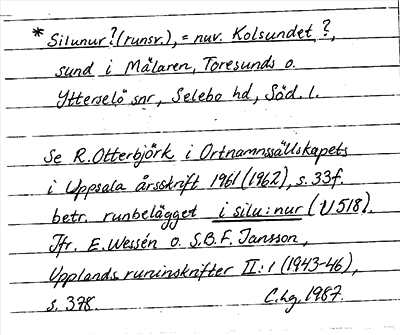 * Silunur? (runsv.), = nuv. Kolsundet?,
sund i Mälaren, Toresunds o.
Ytterselö snr, Selebo hd, Söd. l.
Se R. Otterbjörk i Ortnamnssällskapets
i Uppsala årsskrift 1961 (1962), s. 33f.
betr. runbelägget i silu:nur (U 518).
Jfr. E. Wessén o. S.B.F. Jansson,
Upplands runinskrifter II:1 (1943-46),
s. 378.
C.hg. 1987.